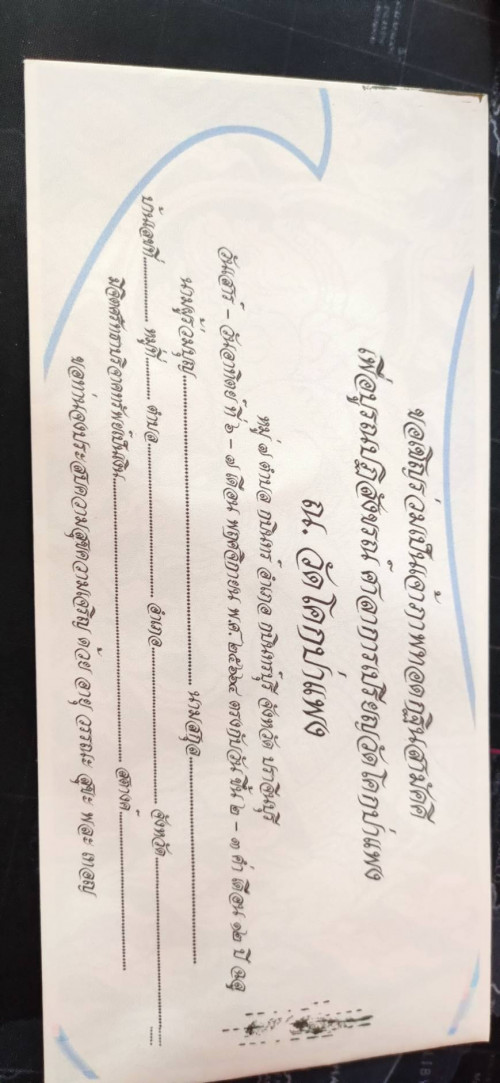 ขอเชิญร่วมเป็นเจ้าภาพทอดกฐินสามัคคี
เพื่อบูรณปฏิสังขรณ์ศาลาการเปรียญวัดโคกป่าแพง
ณ. วัดโคกป่าแพง
หมู่ ๗ ตำบล กบินทร์ อำเภอ กบินทร์บุรี จังหวัด ปราจีนบุรี
วันเสาร์ - วันอาทิตย์ ที่ ๖ - ๗ เดือน พฤศจิกายน พ.ศ. ๒๕๖๔ ตรงกับวัน ขึ้น ๒ - ๓ ค่ำ เดือน ๑๒ ปี ฉลู
นามผู้ร่วมบุญ.......................................................... นามสกุล..........................................................
บ้านเลขที่................ หมู่ที่.......... ตำบล.................................... อำเภอ.................................... จังหวัด....................................
มีจิตศรัทธาบริจาคทรัพย์เป็นเงิน.......................................................... สตางค์....................................
ขอท่านจงประสบความสุขความเจริญ ด้วย อายุ วรรณะ สุขะ พละ เทอญ